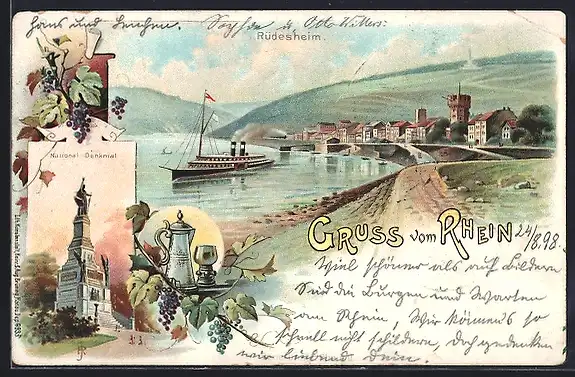 Hans und Lenchen. Sophie u Otto Witters.
Rüdesheim.
National-Denkmal
GRUSS vom RHEIN
24/8.98.
Viel schöner als auf Bildern
Sind die Burgen und Warten
am Rhein, Wir können's so
schnell nicht schildern, Doch gedenken
wir liebend Dein.